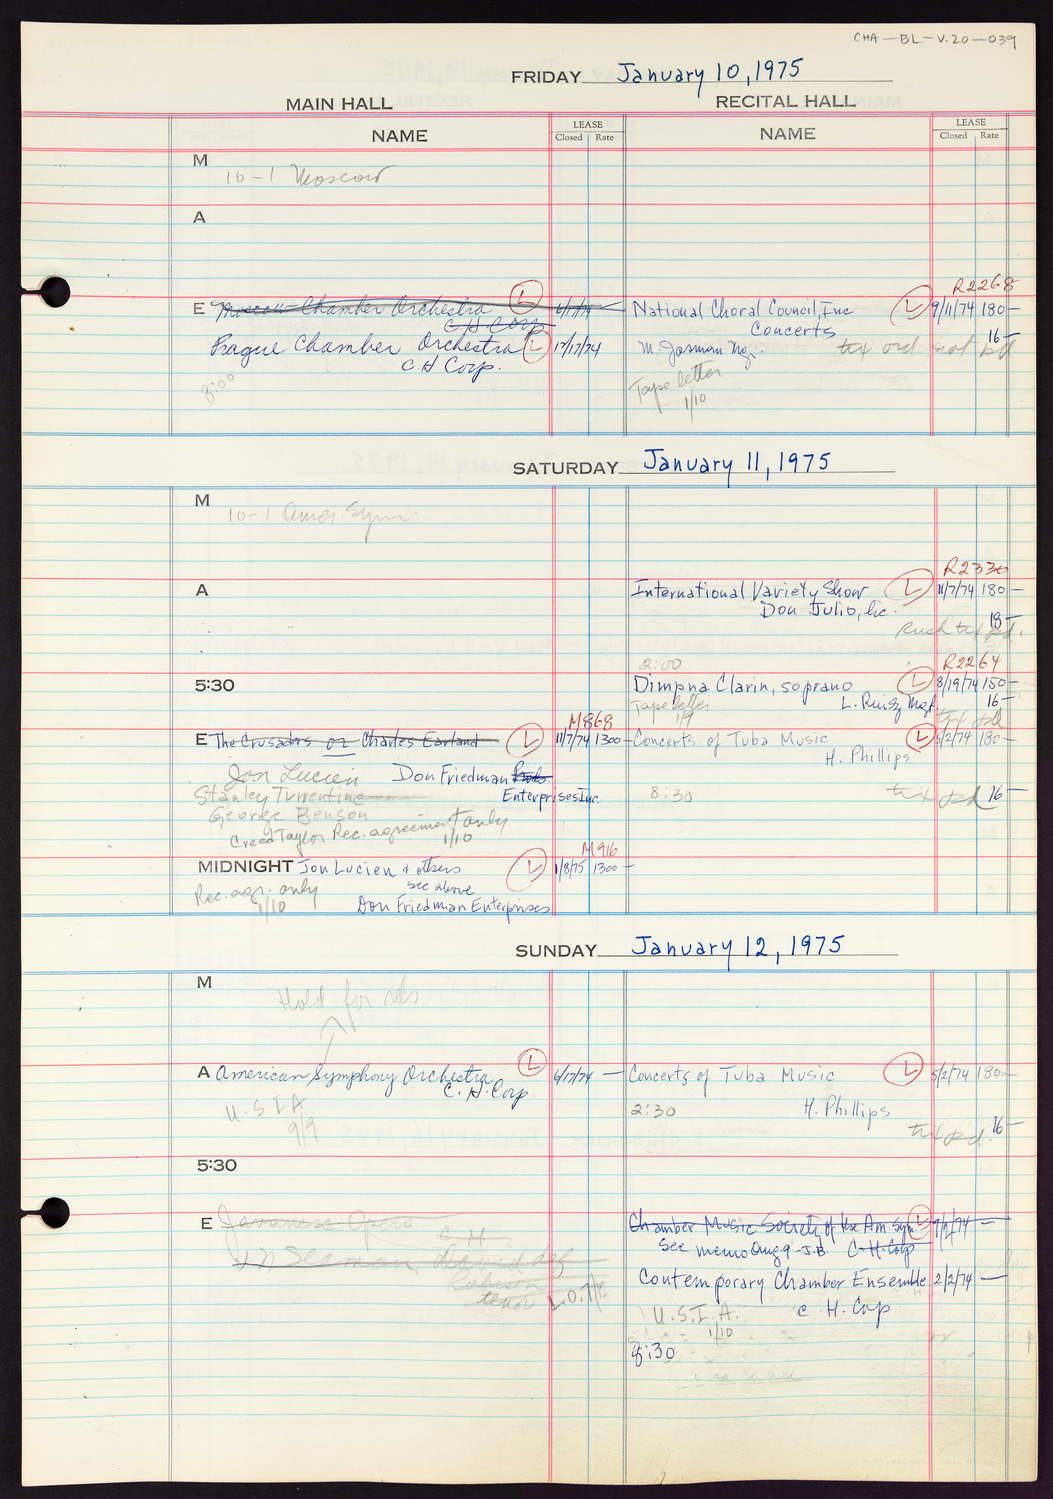 CHA-BL-V.20-039
FRIDAY January 10, 1975
MAIN HALL RECITAL HALL
NAME LEASE Closed Rate NAME LEASE Closed Rate
M
10-1 Moscow
A
R2268
E Moscow Chamber Orchestra L 6/17/74 — National Choral Council, Inc L 9/11/74 180 —
C H Corp Concerts 16 —
Prague Chamber Orchestra L 12/17/74 M. Josman Mg. tix ord not
C. H Corp.
8:00 Tape letter
1/10
SATURDAY January 11, 1975
M
10-1 Amer. Sym.
R2330
A International Variety Show L 11/7/74 180 —
Don Julio, Inc. 18 —
Rush tix pd.
2:00 R2264
5:30 Dimpna Clarin, soprano L 8/19/74 150 —
Tape letter L. Ruisz Mgt 16 —
1/9 tix pd
M868
E The Crusaders or Charles Earland L 11/7/74 1300 — Concerts of Tuba Music L 5/2/74 180 —
H. Phillips
Jon Lucien Don Friedman
Stanley Turrentine Enterprises Inc. 8:30 tix pd 16 —
George Benson
Creed Taylor Rec. agreement only
1/10
M916
MIDNIGHT Jon Lucien & others L 1/8/75 1300 —
see above
Rec. agr. only
1/10 Don Friedman Enterprises
SUNDAY January 12, 1975
M
Hold for
A American Symphony Orchestra L 6/17/74 — Concerts of Tuba Music L 5/2/74 180 —
C. H. Corp
U.S.I A 2:30 H. Phillips
9/9 tix pd. 16 —
5:30
E Javanese Opera Chamber Music Society of the Am. Sym. L —
C H See memo Aug. 9 - J.B. C. H. Corp
Contemporary Chamber Ensemble 2/2/74 —
tenor U.S.I.A. C H. Corp
1/10
8:30